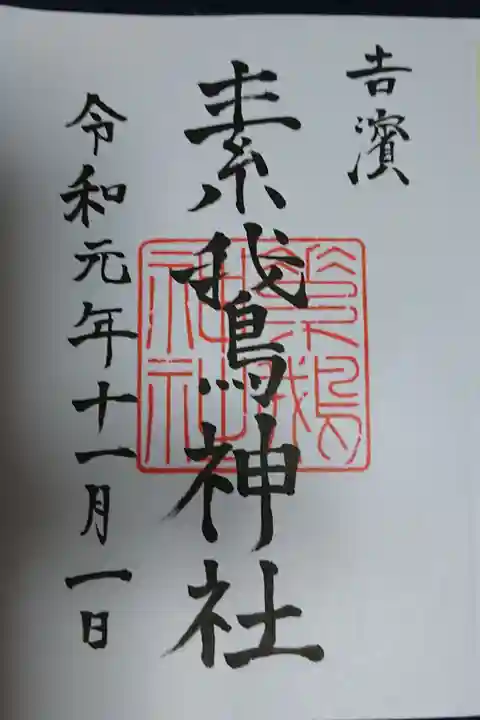 吉濱
素鵞神社
令和元年十一月一日
素鵝
神社